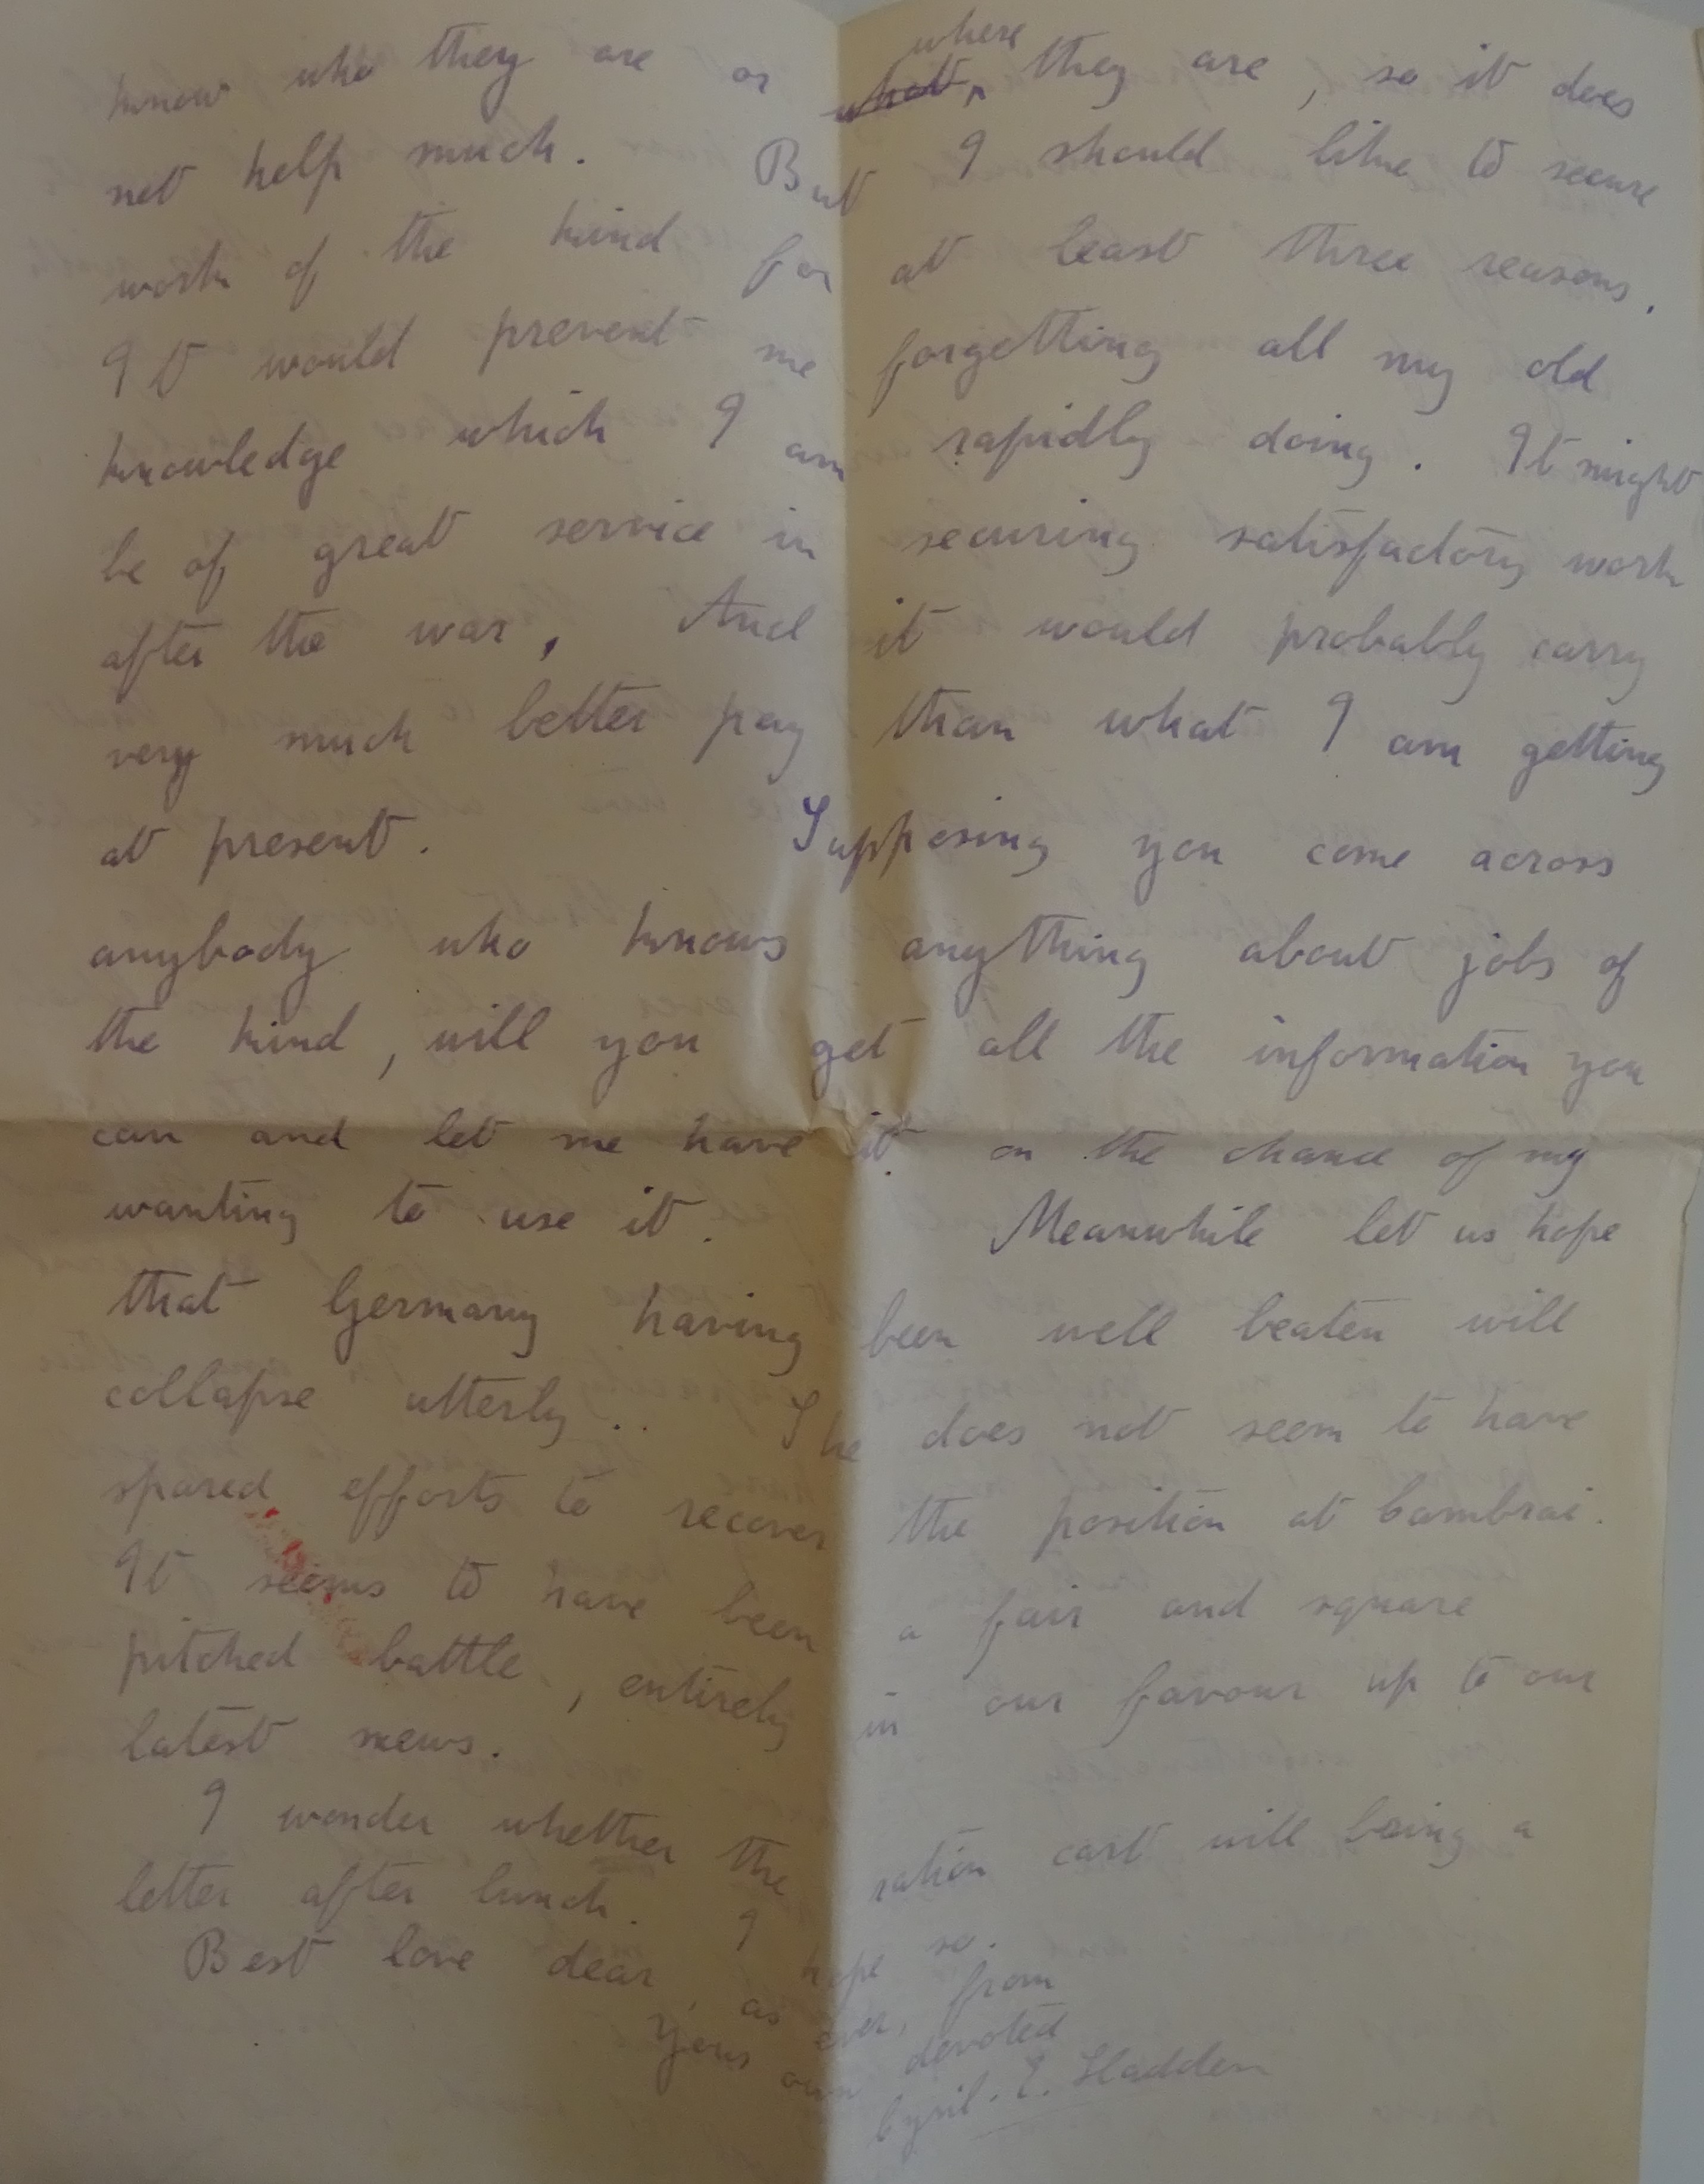 know who they are or ~~what~~ where they are, so it does
not help much. But I should like to secure
work of the kind for at least three reasons.
It would prevent me forgetting all my old
knowledge which I am rapidly doing. It might
be of great service in securing satisfactory work
after the war, And it would probably carry
very much better pay than what I am getting
at present. Supposing you come across
anybody who knows anything about jobs of
the kind, will you get all the information you
can and let me have it on the chance of my
wanting to use it. Meanwhile let us hope
that Germany having been well beaten will
collapse utterly.. She does not seem to have
spared efforts to recover the position at Cambrai.
It seems to have been a fair and square
pitched battle, entirely in our favour up to our
latest news.
I wonder whether the ration cart will bring a
letter after lunch. I hope so.
Best love dear, as ever, from
Your own devoted
Cyril. E. Sladden